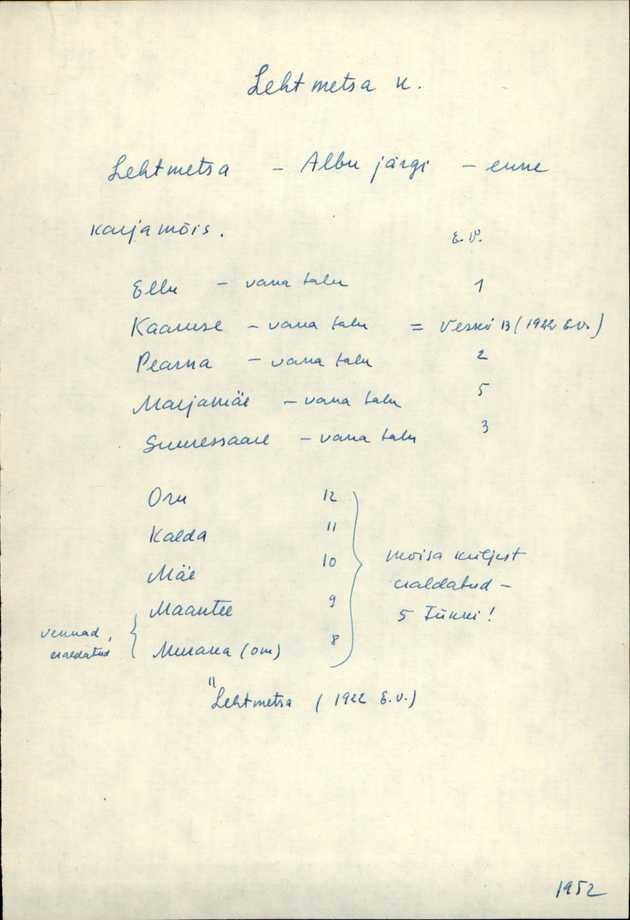 Lehtmetsa k.
Lehtmetsa – Albu järgi – enne
karjamõis.
E.V.
Ellu – vana talu 1
Kaaruse – vana talu = Veski 13 (1922 E.V.)
Pearna – vana talu 2
Marjamäe – vana talu 5
Suuressaare – vana talu 3
Oru 12
Kalda 11
Mäe 10
Maantee 9
Muraka (om) 8
mõisa küljest
eraldatud –
5 tükki!
vennad,
eraldatud
" Lehtmetsa (1922 E.V.)
1952